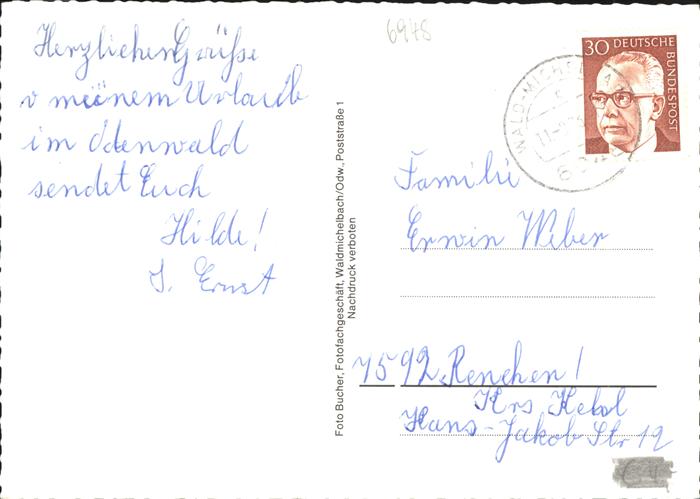 6948
Herzlichen Grüße
v meinem Urlaub
im Odenwald
sendet Euch
Hilde!
J. Ernst
Foto Bucher, Fotofachgeschäft, Waldmichelbach/Odw., Poststraße 1
Nachdruck verboten
30 DEUTSCHE
BUNDESPOST
WALD-MICHEL
Familie
Erwin Weber
7592 Renchen!
Krs Kehl
Hans-Jakob Str 12